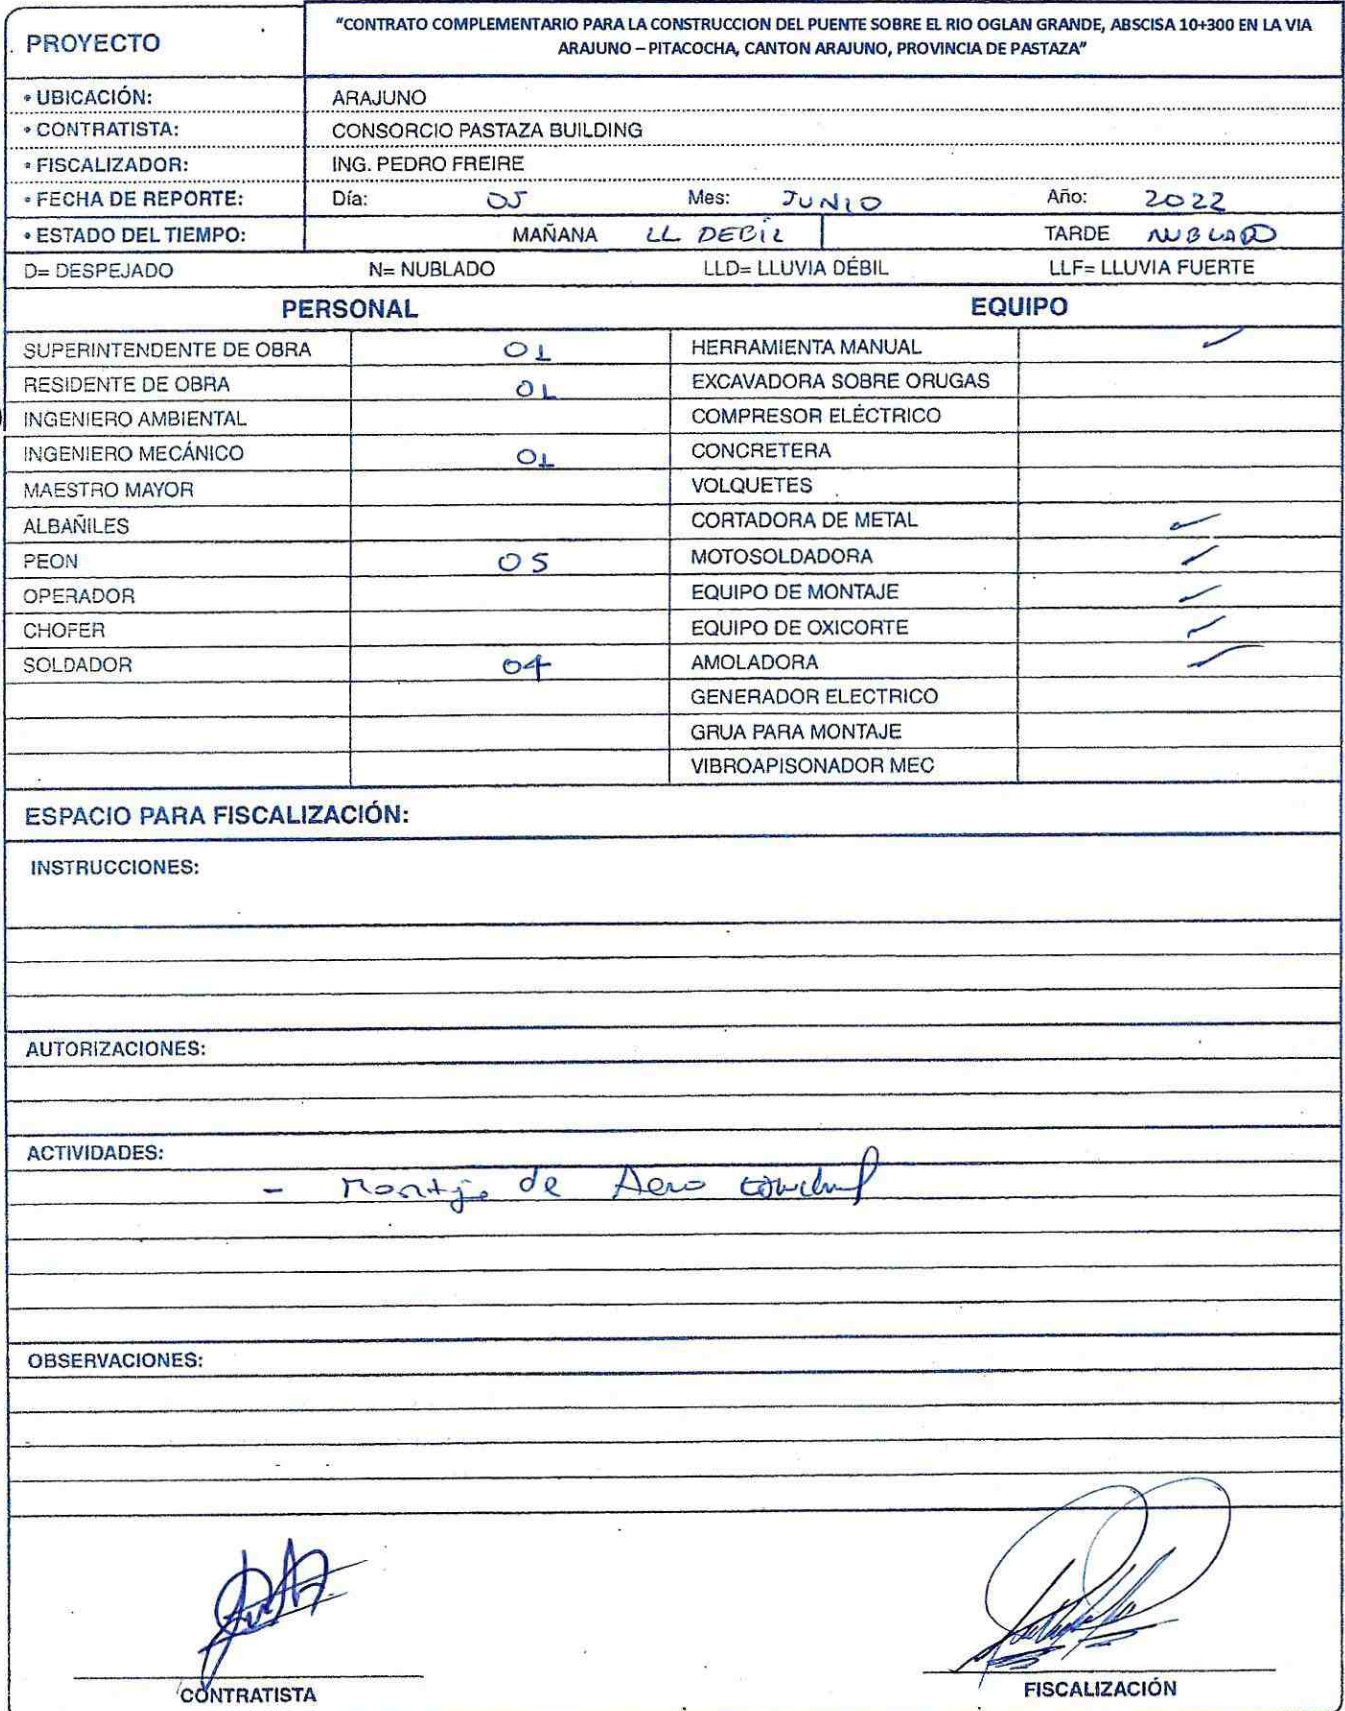 PROYECTO
"CONTRATO COMPLEMENTARIO PARA LA CONSTRUCCION DEL PUENTE SOBRE EL RIO OGLAN GRANDE, ABSCISA 10+300 EN LA VIA
ARAJUNO – PITACOCHA, CANTON ARAJUNO, PROVINCIA DE PASTAZA"
• UBICACIÓN: ARAJUNO
• CONTRATISTA: CONSORCIO PASTAZA BUILDING
• FISCALIZADOR: ING. PEDRO FREIRE
• FECHA DE REPORTE: Día: 05 Mes: JUNIO Año: 2022
• ESTADO DEL TIEMPO: MAÑANA LL DEBIL TARDE NUBLADO
D= DESPEJADO N= NUBLADO LLD= LLUVIA DÉBIL LLF= LLUVIA FUERTE
PERSONAL EQUIPO
SUPERINTENDENTE DE OBRA 01 HERRAMIENTA MANUAL ✓
RESIDENTE DE OBRA 01 EXCAVADORA SOBRE ORUGAS
INGENIERO AMBIENTAL COMPRESOR ELÉCTRICO
INGENIERO MECÁNICO 01 CONCRETERA
MAESTRO MAYOR VOLQUETES
ALBAÑILES CORTADORA DE METAL ✓
PEON 05 MOTOSOLDADORA ✓
OPERADOR EQUIPO DE MONTAJE ✓
CHOFER EQUIPO DE OXICORTE ✓
SOLDADOR 04 AMOLADORA ✓
GENERADOR ELECTRICO
GRUA PARA MONTAJE
VIBROAPISONADOR MEC
ESPACIO PARA FISCALIZACIÓN:
INSTRUCCIONES:
AUTORIZACIONES:
ACTIVIDADES:
- Montaje de Acero
OBSERVACIONES:
CONTRATISTA FISCALIZACIÓN